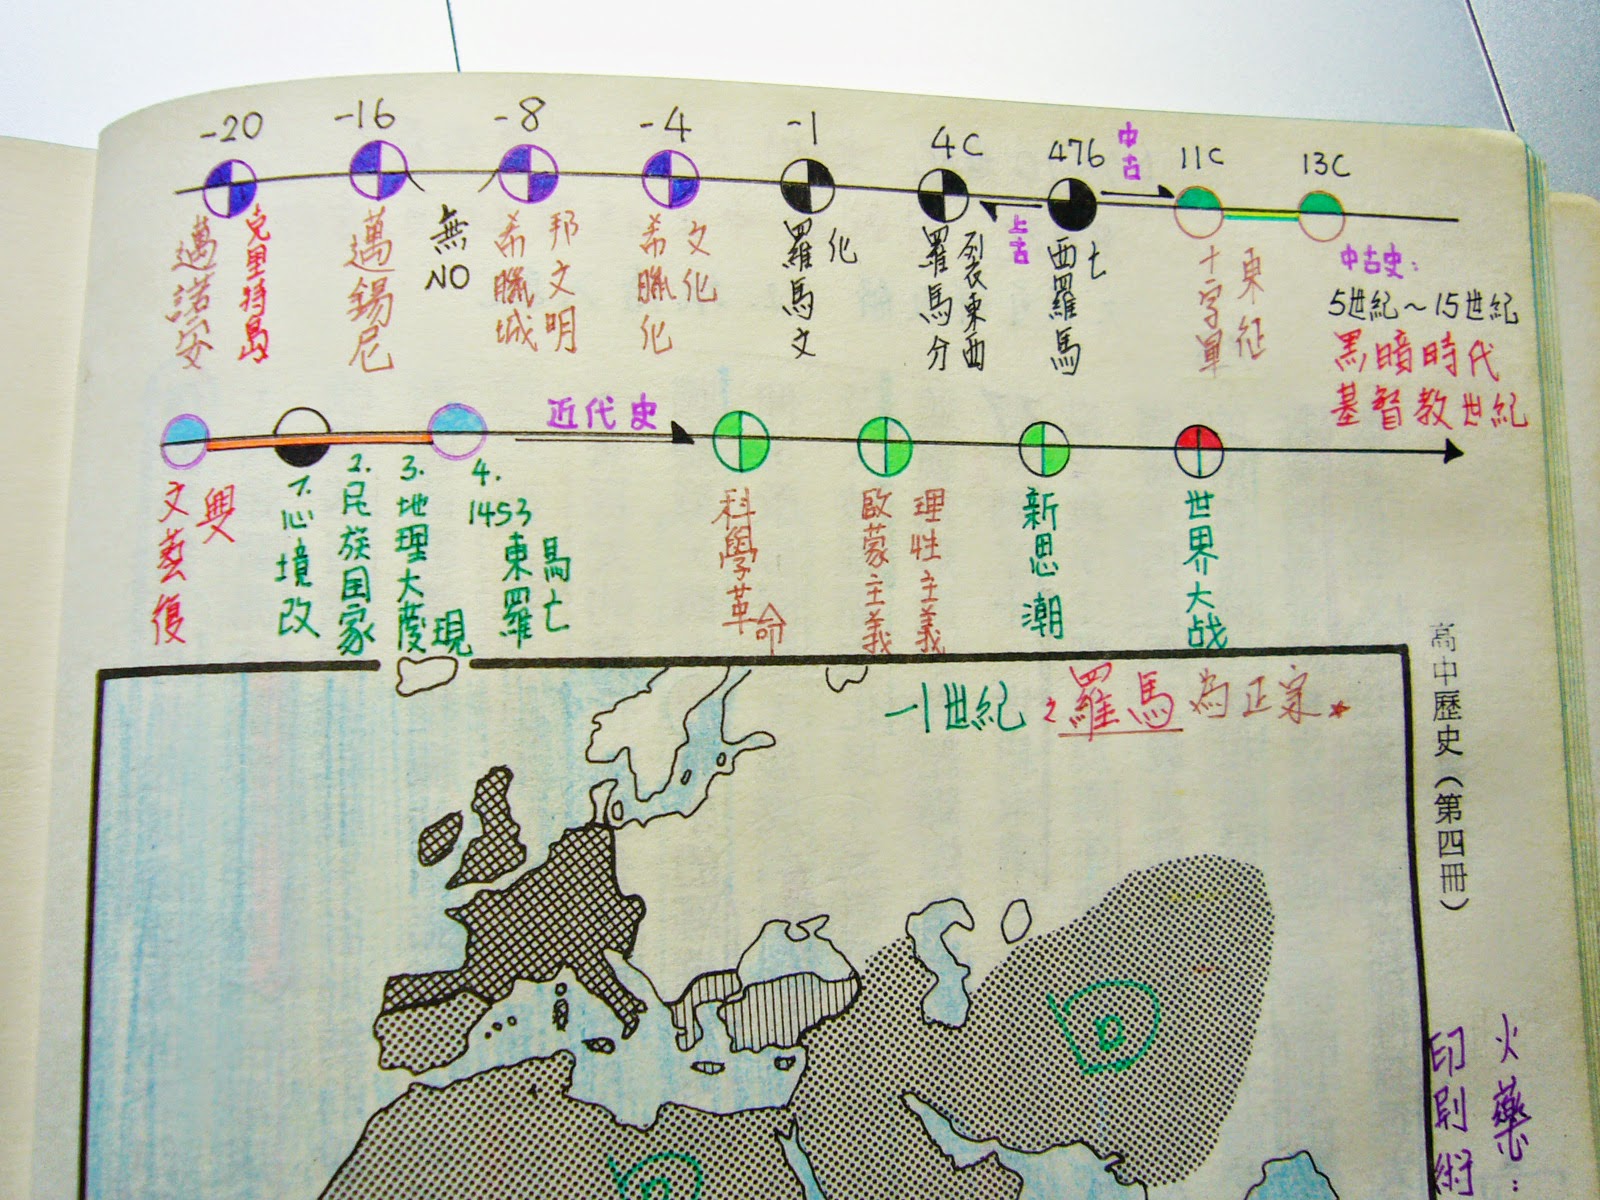 -20
-16
-8
-4
-1
4C
476
中古
11C
13C
邁諾安
克里特島
邁錫尼
無
NO
希臘城邦文明
希臘化文化
羅馬文化
羅馬分裂東西
上古
西羅馬亡
十字軍東征
中古史：
5世紀～15世紀
黑暗時代
基督教世紀
近代史
文藝復興
1.心境改
2.民族国家
3.地理大發現
4.1453東羅馬亡
科學革命
啟蒙主義
理性主義
新思潮
世界大战
-1世紀之羅馬為正宗
高中歷史（第四冊）
火藥：
印刷術